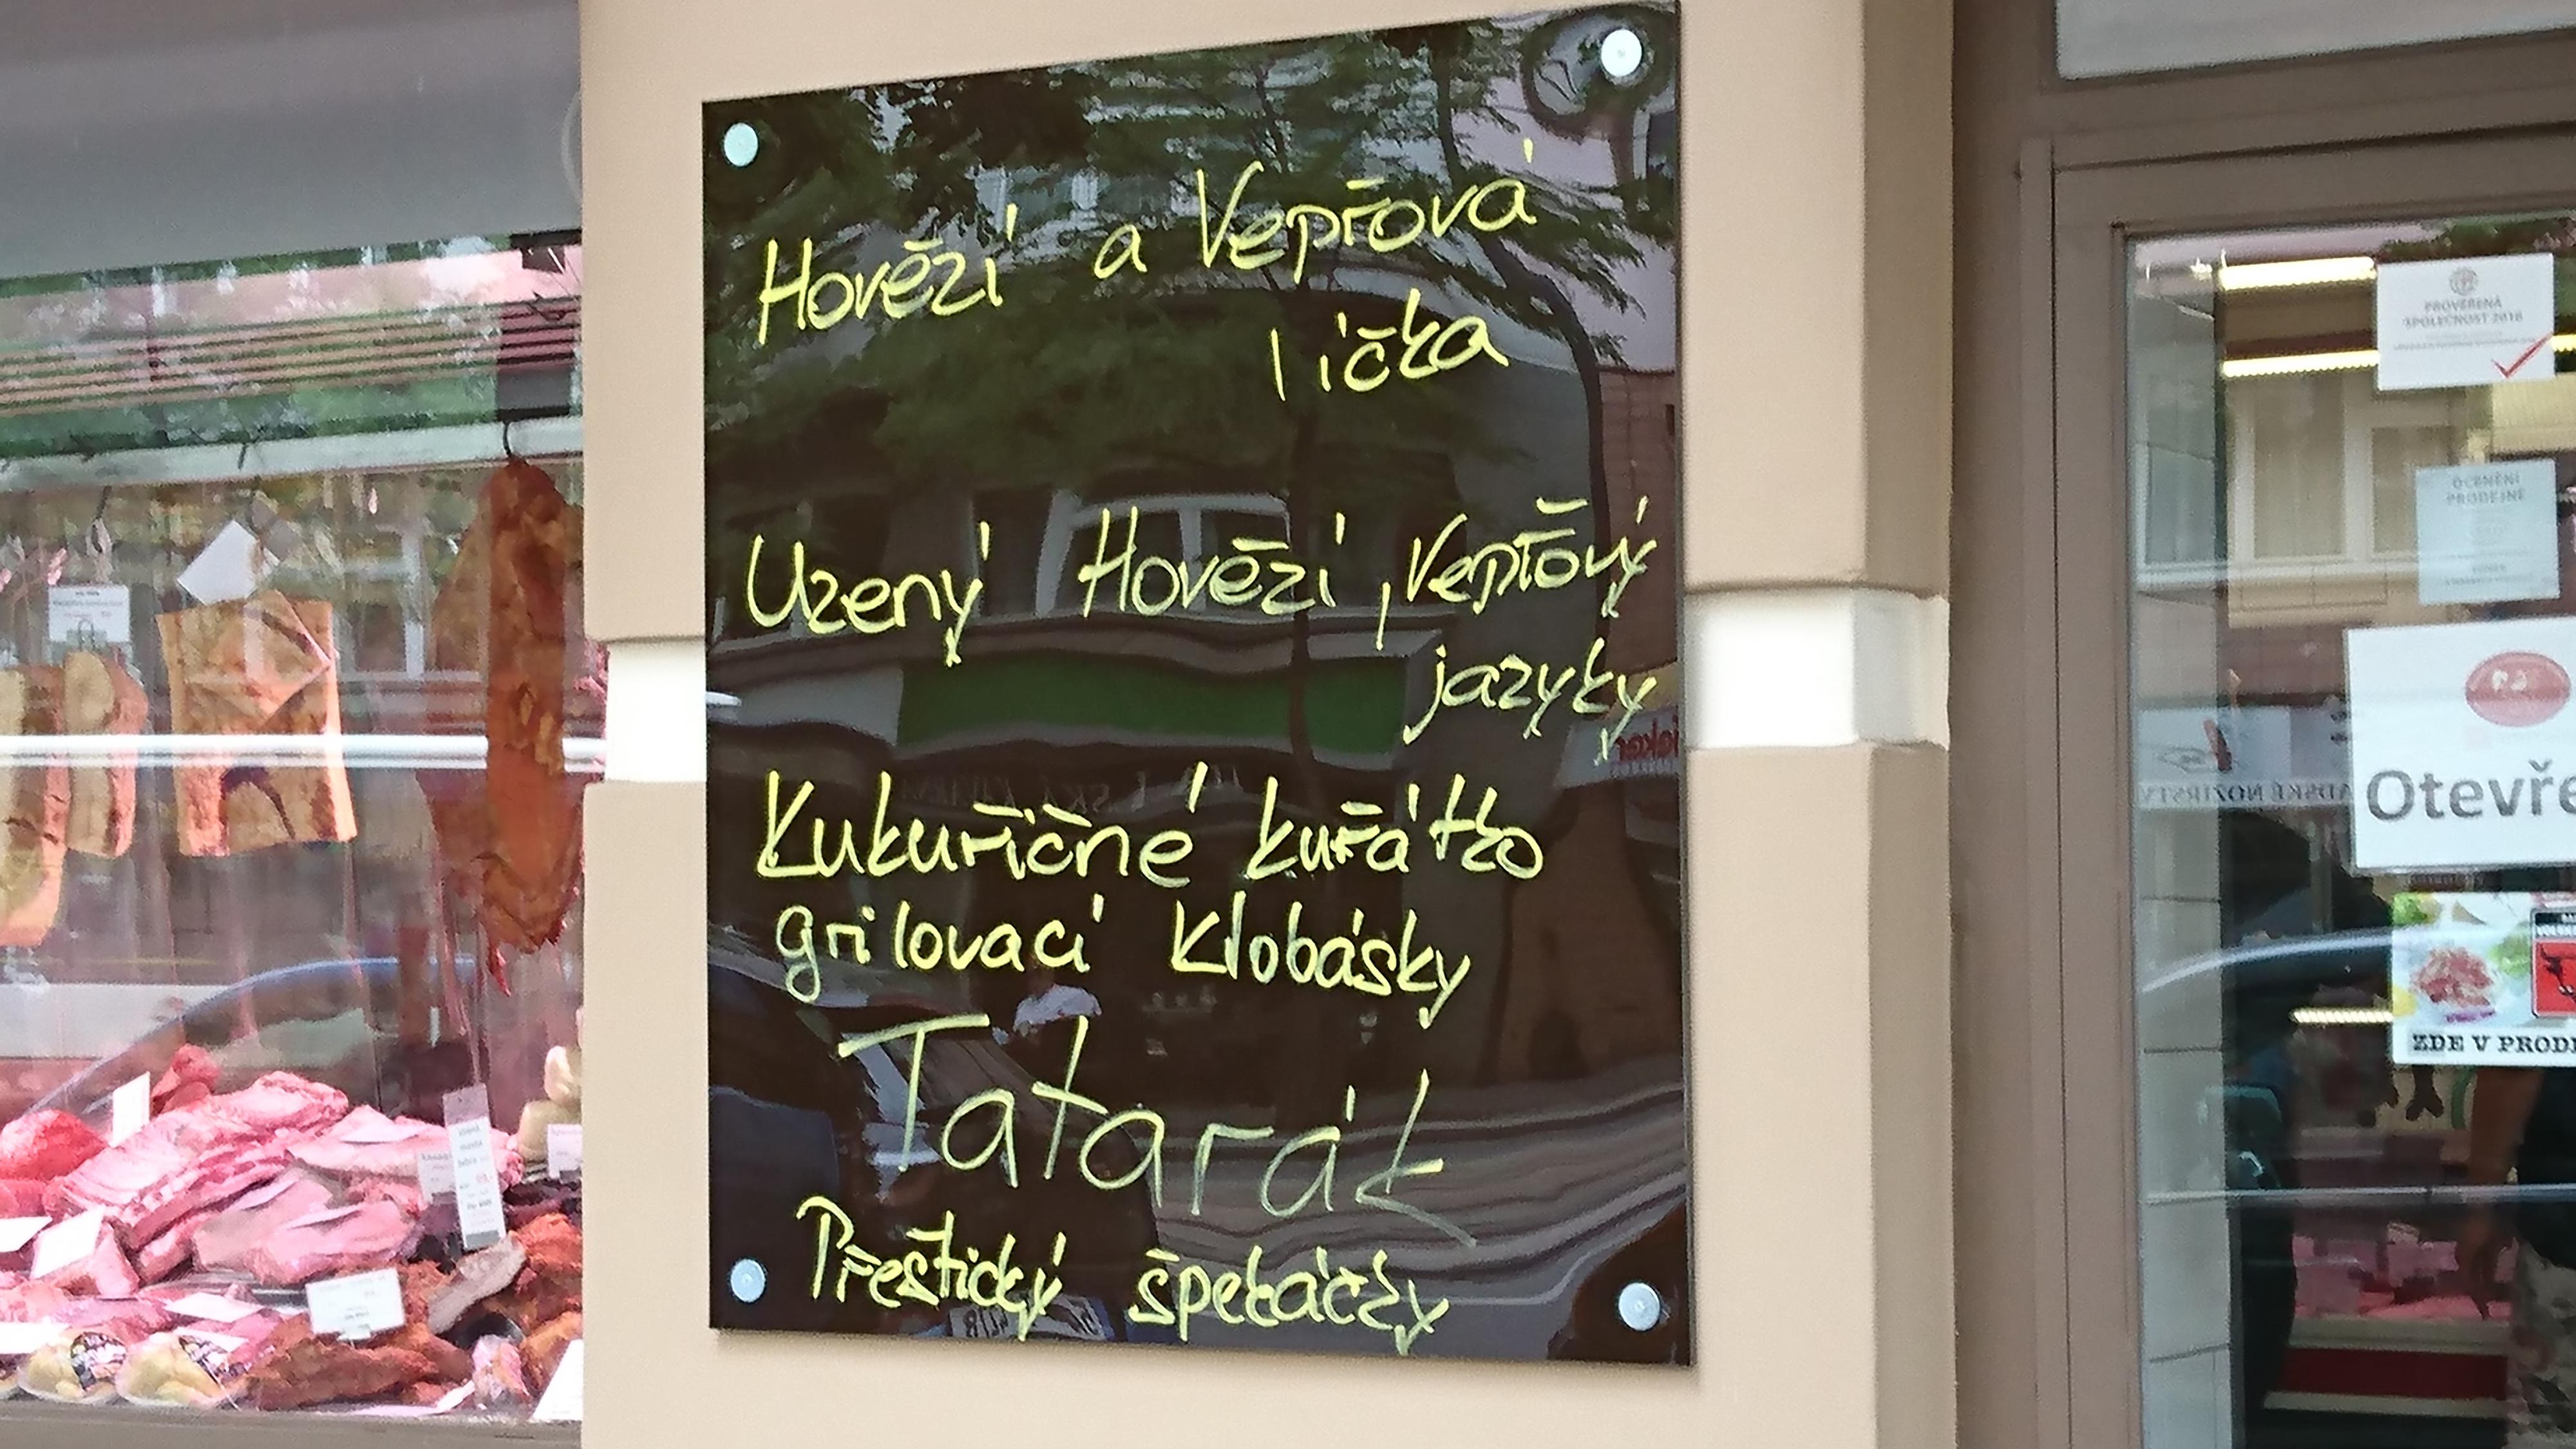 Hovězí a Vepřová
líčka
Uzený Hovězí, Vepřový
jazyky
Kukuřičné kuřátko
grilovací klobásky
Tatarák
Přeštický špekáčky
PROVĚŘENÁ
SPOLEČNOST 2018
OCENĚNÍ
PRODEJNÉ
Otevře
ZDE V PRODE